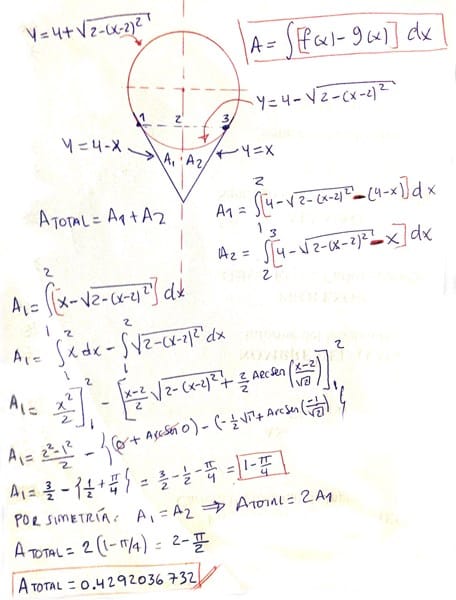 Y=4+√(2-(x-2)²)
A = ∫[f(x)-g(x)] dx
Y=4-√(2-(x-2)²)
1 2 3
Y=4-X
A₁ A₂
Y=X
A TOTAL = A₁ + A₂
A₁ = ∫₁² [4-√(2-(x-2)²) - (4-x)] dx
A₂ = ∫₂³ [4-√(2-(x-2)²) - x] dx
A₁ = ∫₁² [x-√(2-(x-2)²)] dx
A₁ = ∫₁² x dx - ∫₁² √(2-(x-2)²) dx
A₁ = x²/2]₁² - [x-2/2 √(2-(x-2)²) + 2/2 Arcsen(x-2/√2)]₁²
A₁ = 2²-1²/2 - {(0 + Arcsen 0) - (-1/2 √1 + Arcsen(-1/√2))}
A₁ = 3/2 - {1/2 + π/4} = 3/2 - 1/2 - π/4 = 1-π/4
POR SIMETRÍA: A₁ = A₂ ⇒ A TOTAL = 2A₁
A TOTAL = 2(1-π/4) = 2-π/2
A TOTAL = 0.4292036732 ✓